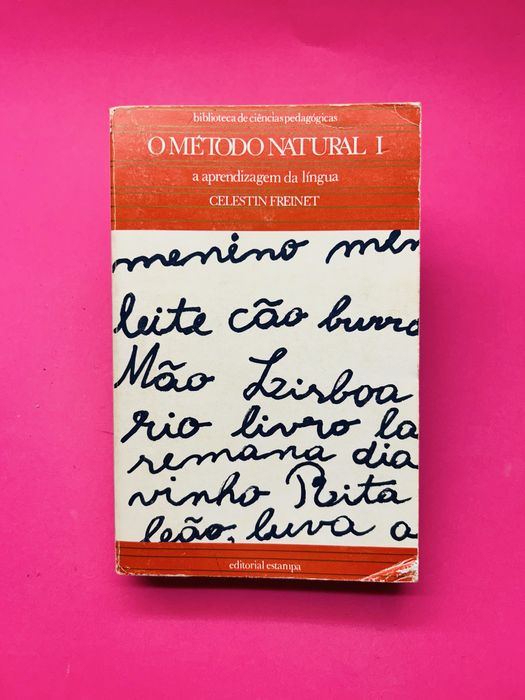 biblioteca de ciências pedagógicas
O MÉTODO NATURAL I
a aprendizagem da língua
CELESTIN FREINET
menino men
leite cão burro
Mão Lisboa
rio livro la
semana dia
vinho Rita
leão, luva a
editorial estampa